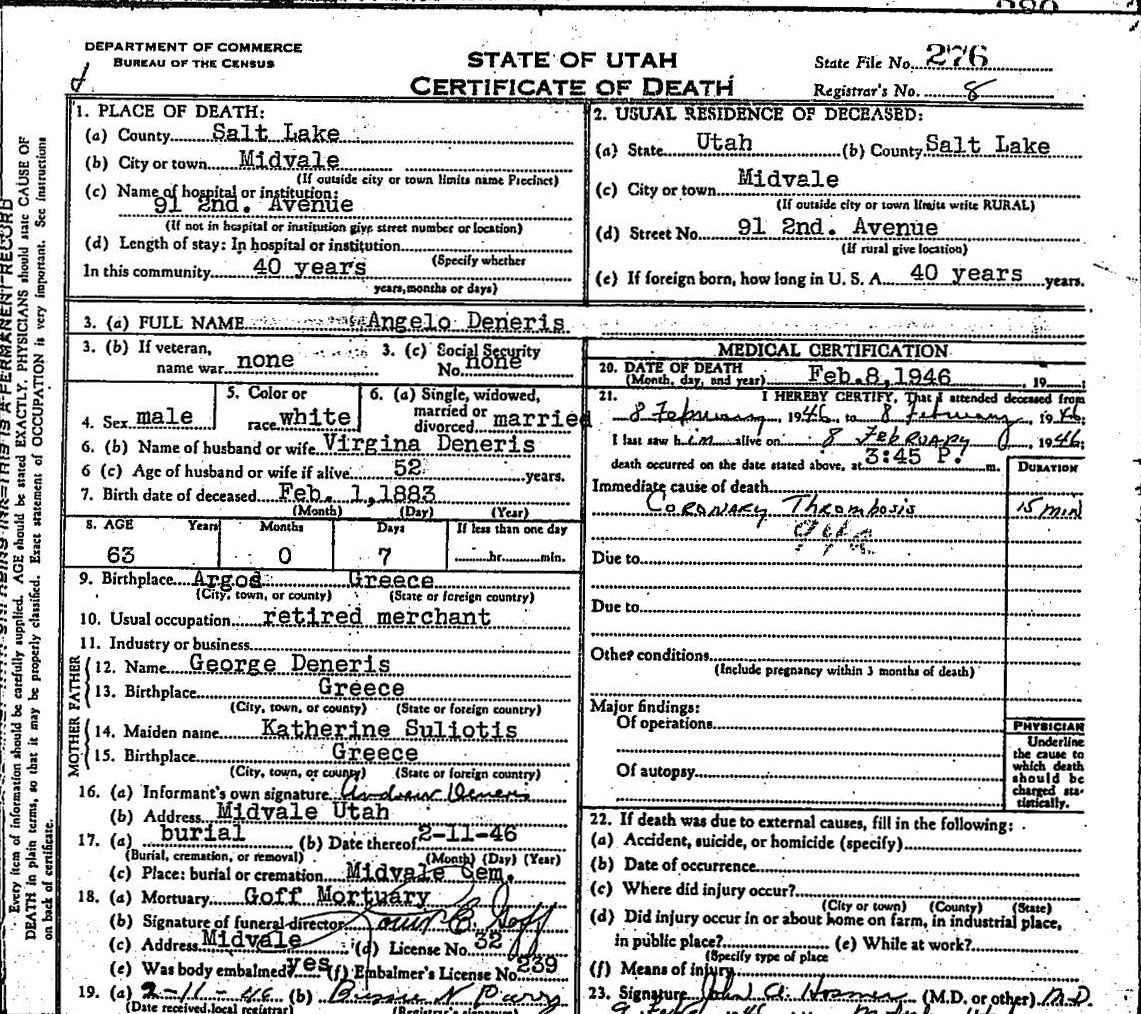 DEPARTMENT OF COMMERCE
BUREAU OF THE CENSUS
STATE OF UTAH
CERTIFICATE OF DEATH
State File No. 276
Registrar's No. 8
1. PLACE OF DEATH:
(a) County Salt Lake
(b) City or town Midvale
(If outside city or town limits name Precinct)
(c) Name of hospital or institution:
91 2nd. Avenue
(If not in hospital or institution give street number or location)
(d) Length of stay: In hospital or institution
(Specify whether
In this community 40 years
years, months or days)
2. USUAL RESIDENCE OF DECEASED:
(a) State Utah (b) County Salt Lake
(c) City or town Midvale
(If outside city or town limits write RURAL)
(d) Street No. 91 2nd. Avenue
(If rural give location)
(e) If foreign born, how long in U. S. A. 40 years years.
3. (a) FULL NAME Angelo Deneris
3. (b) If veteran, name war none
3. (c) Social Security No. none
4. Sex male
5. Color or race white
6. (a) Single, widowed, married or divorced married
6. (b) Name of husband or wife Virgina Deneris
6 (c) Age of husband or wife if alive 52 years.
7. Birth date of deceased Feb. 1,1883
(Month) (Day) (Year)
8. AGE Years Months Days If less than one day
63 0 7 hr. min.
9. Birthplace Argos Greece
(City, town, or county) (State or foreign country)
10. Usual occupation retired merchant
11. Industry or business
FATHER
12. Name George Deneris
13. Birthplace Greece
(City, town, or county) (State or foreign country)
MOTHER
14. Maiden name Katherine Suliotis
15. Birthplace Greece
(City, town, or county) (State or foreign country)
16. (a) Informant's own signature Andrew Deneris
(b) Address Midvale Utah
17. (a) burial (b) Date thereof 2-11-46
(Burial, cremation, or removal) (Month) (Day) (Year)
(c) Place: burial or cremation Midvale Cem.
18. (a) Mortuary Goff Mortuary
(b) Signature of funeral director Goff
(c) Address Midvale (d) License No. 32
(e) Was body embalmed? yes (f) Embalmer's License No. 239
19. (a) 2-11-46 (b)
(Date received local registrar) (Registrar's signature)
MEDICAL CERTIFICATION
20. DATE OF DEATH
(Month, day, and year) Feb.8,1946, 19
21. I HEREBY CERTIFY, That I attended deceased from
8 February, 1946, to 8 February, 1946;
I last saw him alive on 8 February, 1946;
death occurred on the date stated above, at 3:45 P. m.
DURATION
Immediate cause of death
Coronary Thrombosis 15 min
Due to
Due to
Other conditions
(Include pregnancy within 3 months of death)
Major findings:
Of operations
Of autopsy
PHYSICIAN
Underline
the cause to
which death
should be
charged sta-
tistically.
22. If death was due to external causes, fill in the following:
(a) Accident, suicide, or homicide (specify)
(b) Date of occurrence
(c) Where did injury occur?
(City or town) (County) (State)
(d) Did injury occur in or about home on farm, in industrial place,
in public place? (e) While at work?
(Specify type of place
(f) Means of injury
23. Signature John A. Hosmer (M.D. or other) M.D.
Every item of information should be carefully supplied. AGE should be stated EXACTLY. PHYSICIANS should state CAUSE OF
DEATH in plain terms, so that it may be properly classified. Exact statement of OCCUPATION is very important. See instructions
on back of certificate.
THIS IS A PERMANENT RECORD